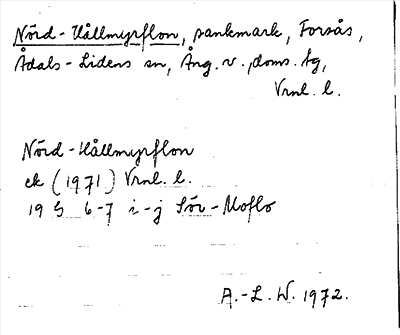 Nörd-Hållmyrflon, sankmark, Forsås,
Ådals-Lidens sn, Ång. v. doms. tg,
Vrnl. l.
Nörd-Hållmyrflon
ek (1971) Vrnl. l.
19 G 6-7 i-j Sör-Moflo
A.-L. W. 1972.